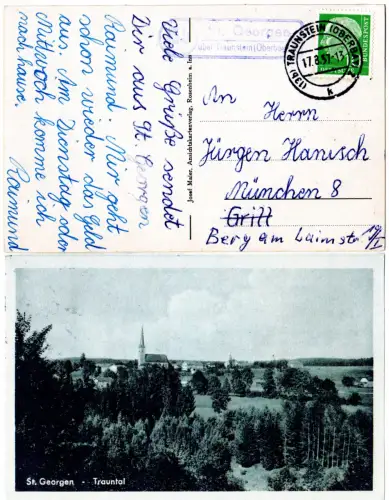 St. Georgen
über Traunstein (Oberbay)
(13b) TRAUNSTEIN (OBERBAY)
17.8.57-17
k
DEUTSCHE BUNDESPOST
Viele Grüße sendet
Dir aus St. Georgen
Raimund. Mir geht
schon wieder das Geld
aus. Am Dienstag oder
Mittwoch komme ich
nach hause.
Raimund
Josef Maier, Ansichtskartenverlag, Rosenheim a. Inn
An
Herrn
Jürgen Hanisch
München 8
Grill
Berg am Laimstr
St. Georgen - Trauntal